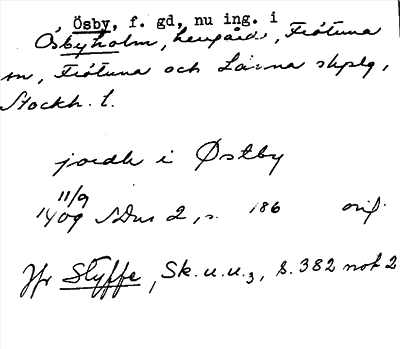 Ösby, f. gd, nu ing. i
Ösbyholm, herrgård, Frötuna
sn, Frötuna och Länna skplg,
Stockh. l.
jordh i Østby
11/9
1409 SDns 2, s. 186 orig.
Jfr Styffe, Sk. u. u. 3, s. 382 not 2